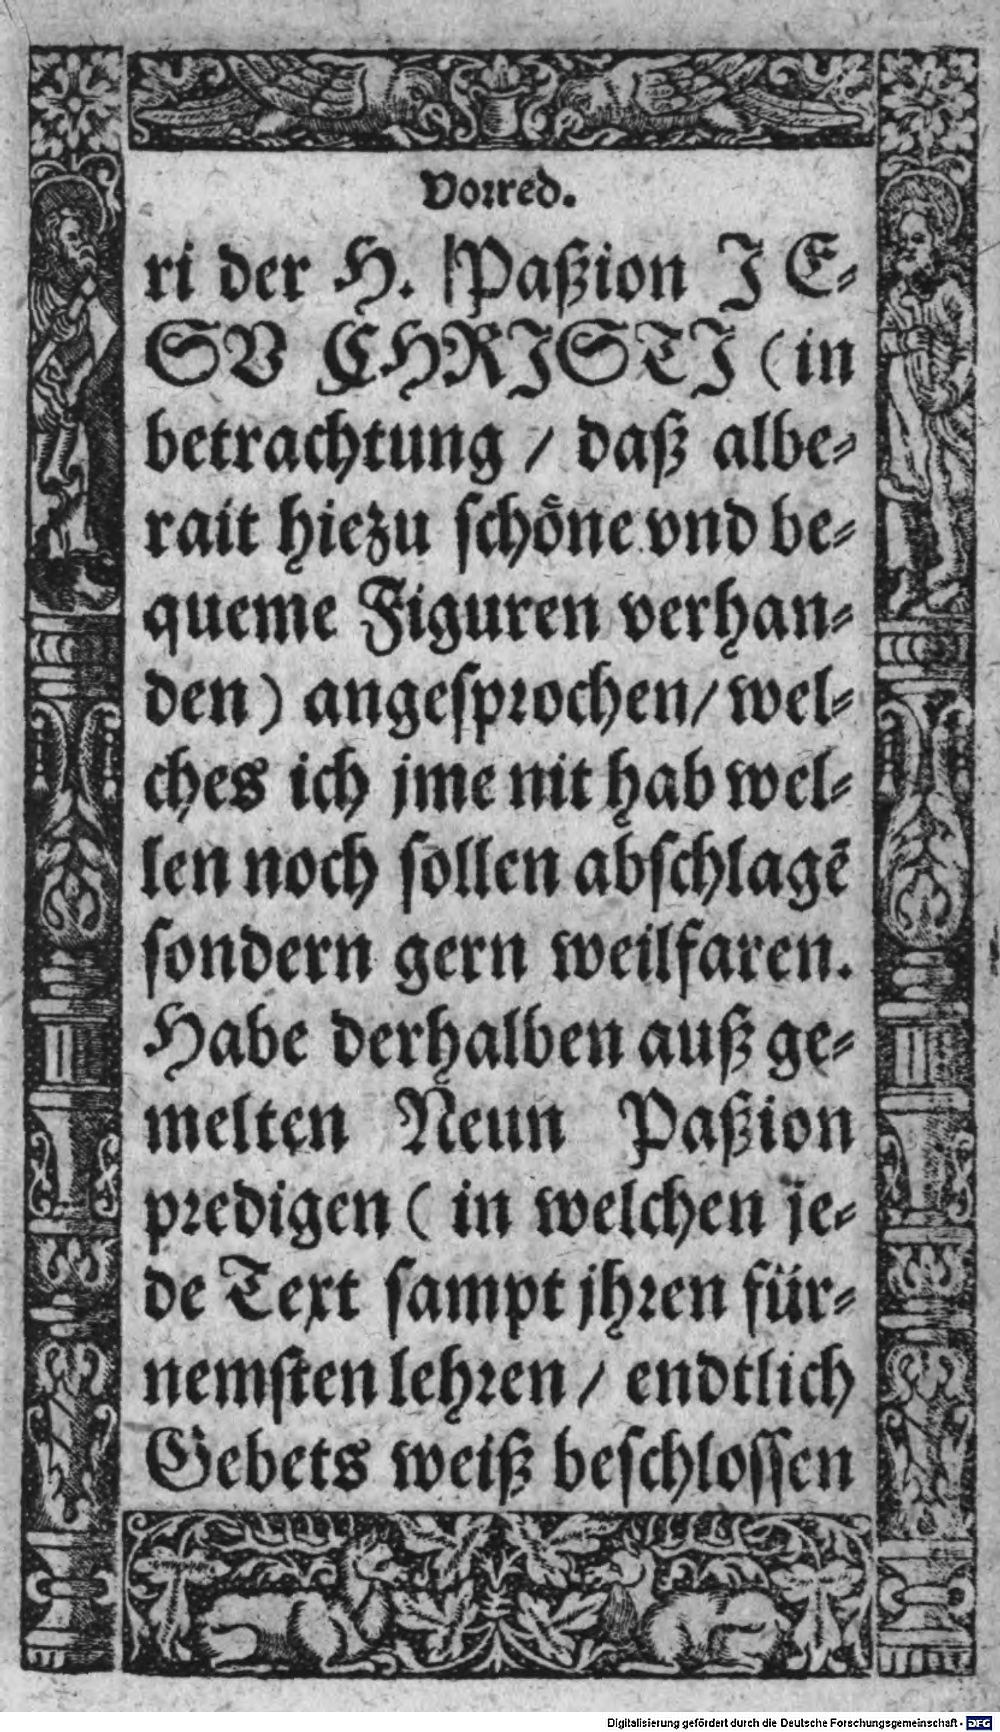 Vorred.
ri der H. Paßion JE⸗
SV CHRISTI (in
betrachtung / daß albe⸗
rait hiezu schöne vnd be⸗
queme Figuren verhan⸗
den) angesprochen/ wel⸗
ches ich jme nit hab wel⸗
len noch sollen abschlagẽ
sondern gern weilfaren.
Habe derhalben auß ge⸗
melten Neun Paßion
predigen ( in welchen je⸗
de Text sampt jhren für⸗
nemsten lehren / endtlich
Gebets weiß beschlossen
Digitalisierung gefördert durch die Deutsche Forschungsgemeinschaft - DFG